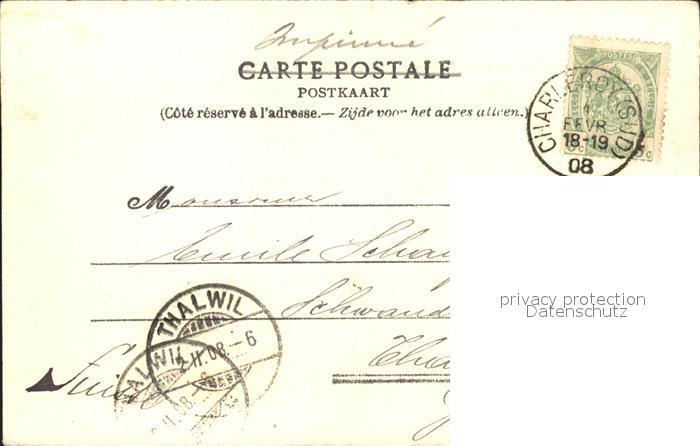 Imprimé
CARTE POSTALE
POSTKAART
(Côté réservé à l'adresse.— Zijde voor het adres alleen.)
POSTES
CHARLEROY (SUD)
1
FEVR
18-19
08
Monsieur
Emile
privacy protection
Datenschutz
THALWIL
2.II.08.-6
THALWIL
II.08.
Suisse